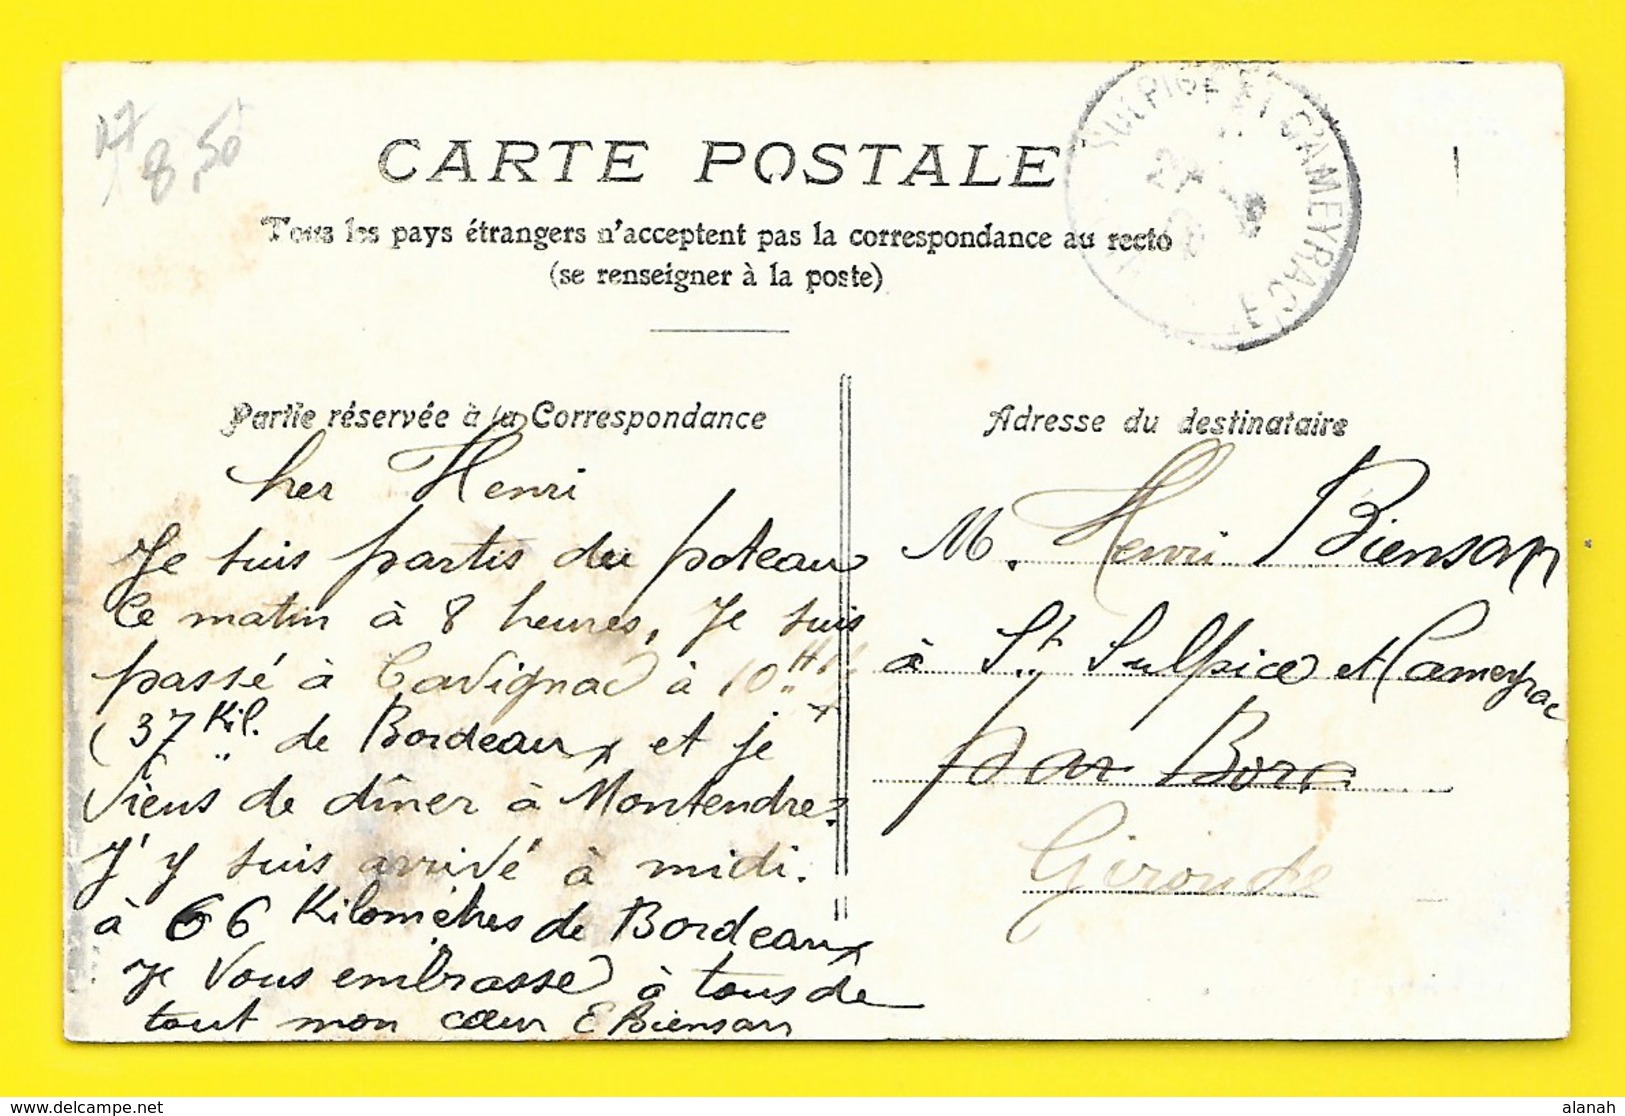 8,50
CARTE POSTALE
Tous les pays étrangers n'acceptent pas la correspondance au recto
(se renseigner à la poste)
SULPICE ET CAMEYRAC
27
Partie réservée à la Correspondance
Cher Henri
Je suis partis du poteau
ce matin à 8 heures, Je suis
passé à Cavignac à 10 H
(37 Kil. de Bordeaux et je
Viens de dîner à Montendre.
J'y suis arrivé à midi.
à 66 Kilomètres de Bordeaux
Je Vous embrasse à tous de
tout mon cœur E Biensan
Adresse du destinataire
M. Henri Biensan
à St Sulpice et Cameyrac
par Bord
Gironde
alanah